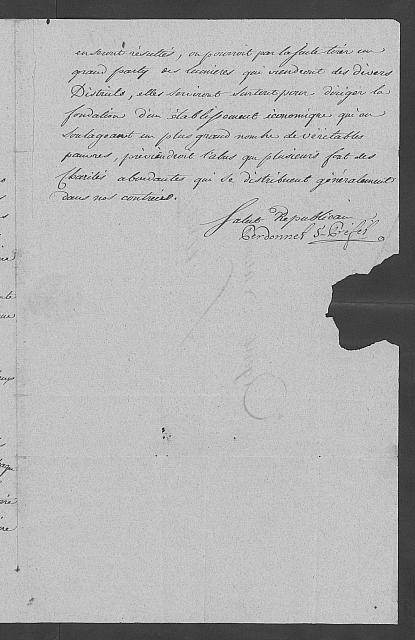 en seront résultés; on pourroit par la suite tirer un
grand party des lumières qui viendront des divers
Districts, elles serviront surtout pour diriger la
fondation d'un établissement économique qui en
soulageant un plus grand nombre de véritables
pauvres, préviendroit l'abus que plusieurs font des
Charités abondantes qui se distribuent généralement
dans nos contrées.
Salut Républicain
Perdonnet S. Préfet